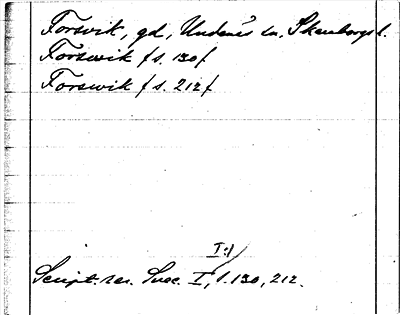 Forsvik, gd, Undenäs sn, Skaraborgs l.
Forswik /s. 130/
Forswik /s. 212/
I:1/
Script. rer. Svec. I, s. 130, 212.